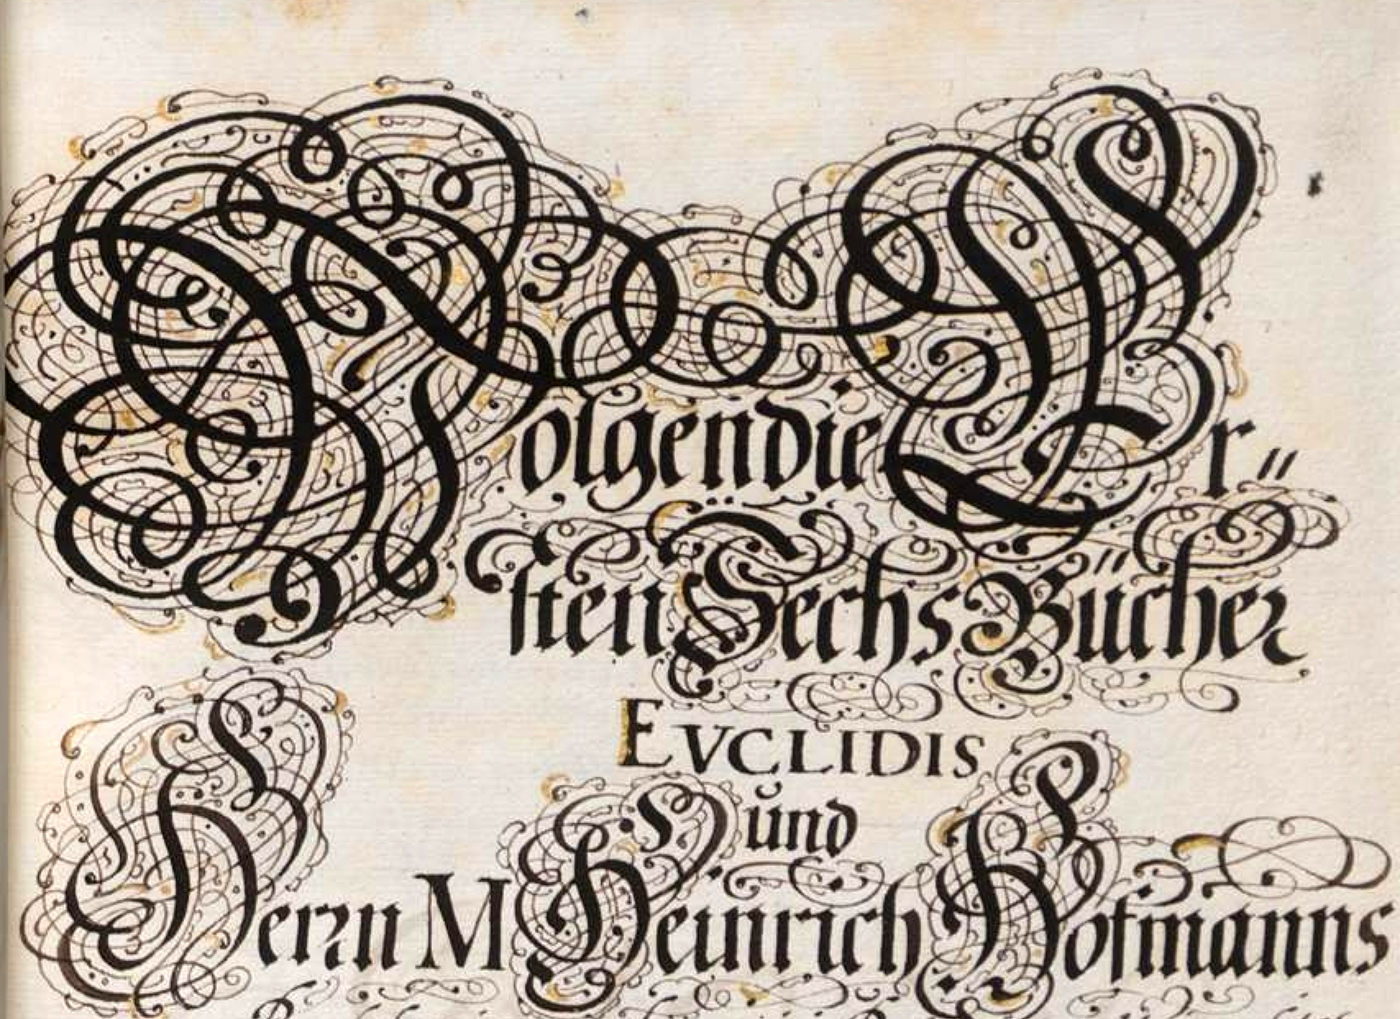 Folgen die Er„
sten Sechs Bücher
EVCLIDIS
und
Herrn M Heinrich Hofmanns